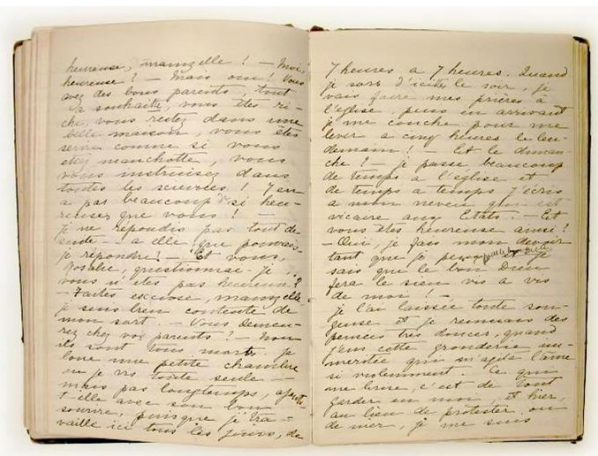 heureuse, mamzelle ! — Moi,
heureuse ! — Mais oui ! Vous
avez des bons parents, tout
souhaité, vous êtes ri-
che, vous restez dans une
belle maison, vous êtes
servie comme si vous
étiez manchotte, vous
vous instruisez dans
toutes les sciences ! Y en
a pas beaucoup de si heu-
reuses que vous ! —
je ne répondis pas tout de
suite — à elle, que pouvais-
je répondre ! — Et vous,
Rosalie, questionnai-je,
vous n'êtes pas heureuse ?
— Faites excuse, mamzelle
je suis ben contente de
mon sort. — Vous demeu-
rez chez vos parents ? — Non
ils sont tous morts je
loue une petite chambre
où je vis toute seule —
mais pas longtemps, ajouta-
t-elle avec son bon
sourire, puisque je tra-
vaille ici tous les jours, de
7 heures à 7 heures. Quand
je sors d'icite le soir, je
vais faire mes prières à
l'église, puis en arrivant
je me couche pour me
lever à cinq heures le len-
demain ! — Et le diman-
che ? — je passe beaucoup
de temps à l'église et
de temps à temps j'écris
à mon neveu qui est
vicaire aux Etats. — Et
vous êtes heureuse ainsi !
— Oui, je fais mon devoir
tant que je peux et je
sais que le bon Dieu
fera le sien vis à vis
de moi ! —
je l'ai laissée toute son-
geuse et je remuais des
pensées très douces, quand
j'eus cette gronderie im-
méritée qui m'agite l'âme
si violemment. Ce qui
me brise, c'est de tout
garder en moi, et hier,
au lieu de protester, ou
de nier, je me suis